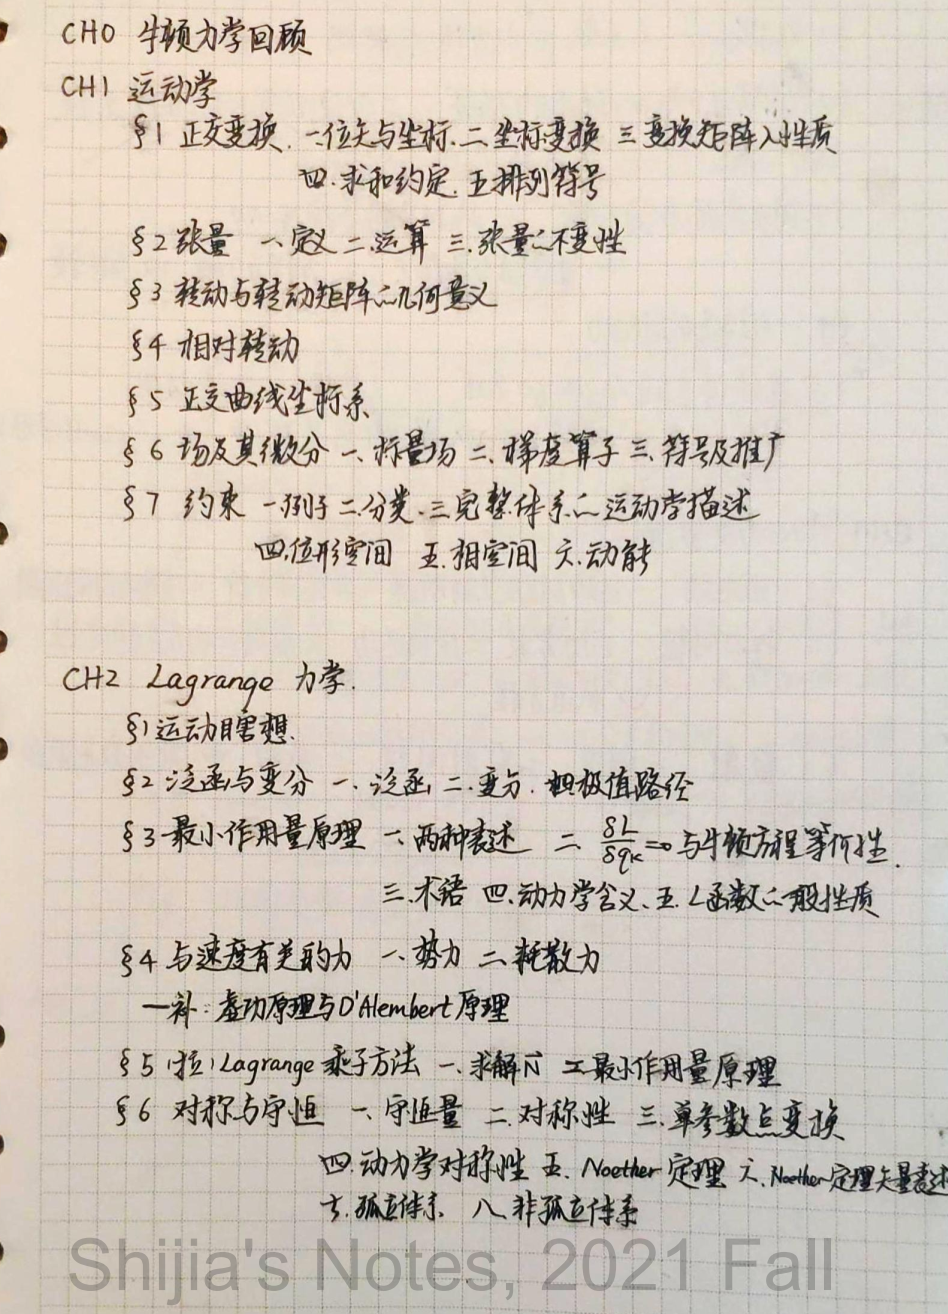 CH0 牛顿力学回顾
CH1 运动学
§1 正交变换. 一.位矢与坐标. 二.坐标变换 三.变换矩阵∴性质
四.求和约定. 五.排列符号
§2 张量 一.定义 二.运算 三.张量∴不变性
§3 转动与转动矩阵∴几何意义
§4 相对转动
§5 正交曲线坐标系
§6 场及其微分 一.标量场 二.梯度算子 三.符号及推广
§7 约束 一.例子 二.分类. 三.完整体系∴运动学描述
四.位形空间 五.相空间 六.动能
CH2 Lagrange 力学.
§1 运动瞎想.
§2 泛函与变分 一.泛函 二.变分. 极值路径
§3 最小作用量原理 一.两种表述 二. δL/δqₖ=0 与牛顿方程等价性.
三.术语 四.动力学含义. 五.L函数∴一般性质
§4 与速度有关的力 一.势力 二.耗散力
—补: 虚功原理与D'Alembert原理
§5 (拉)Lagrange 乘子方法 一.求解N⃗ 二.最小作用量原理
§6 对称与守恒 一.守恒量 二.对称性 三.单参数点变换
四.动力学对称性 五. Noether 定理 六.Noether定理矢量表述
七.孤立体系 八.非孤立体系
Shijia's Notes, 2021 Fall